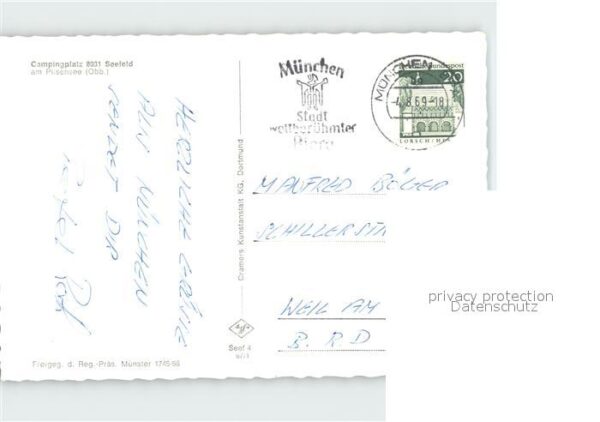 Campingplatz 8031 Seefeld
am Pilsensee (Obb.)
HERZLICHE GRÜSSE
AUS MÜNCHEN
SENDET DIR
Cramers Kunstanstalt KG, Dortmund
Agfa
Seef 4
Freigeg. d. Reg.-Präs. Münster 1745/66
München
Stadt
weltberühmter
Biere
MÜNCHEN
8.69-18
bundespost
20
LORSCH/HES
MANFRED BÖGER
SCHILLERST
WEIL AM
B. R. D
privacy protection
Datenschutz